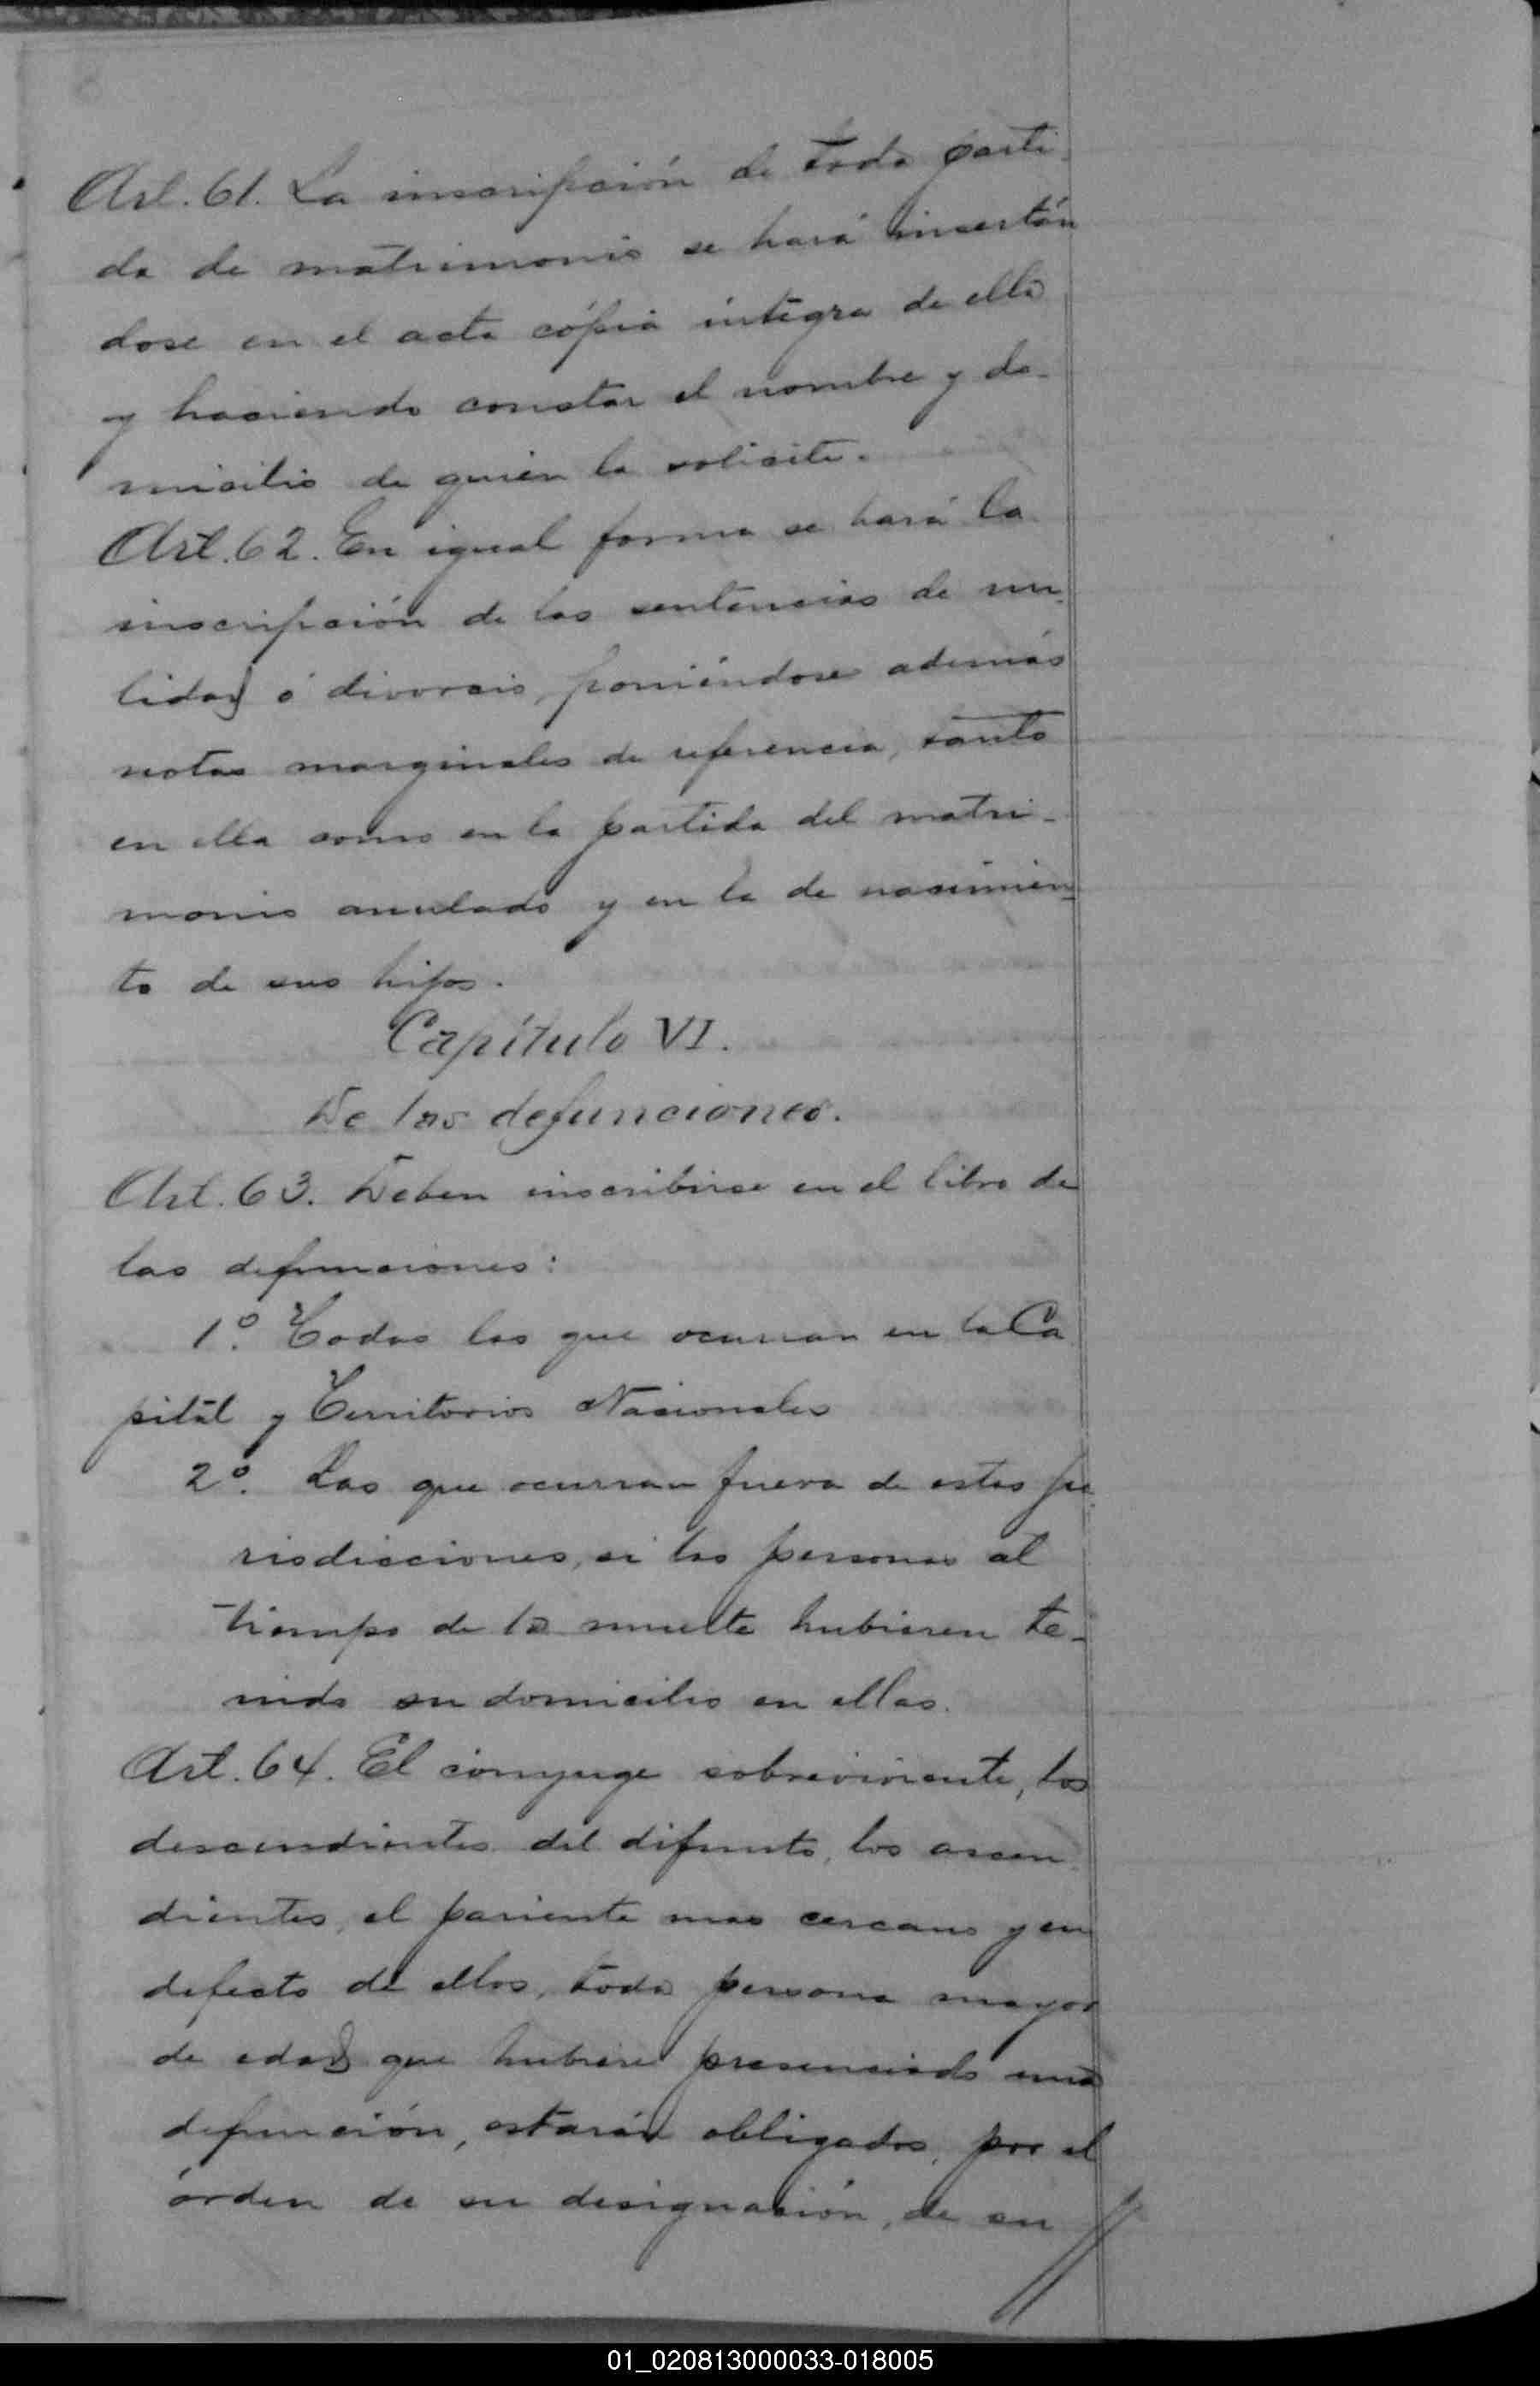 Art. 61. La inscripción de toda parti-
da de matrimonio se hará insertán
dose en el acta cópia íntegra de ella
y haciendo constar el nombre y do-
micilio de quien la solicite.
Art. 62. En igual forma se hará la
inscripción de las sentencias de nu-
lidad ó divorcio, poniéndose además
notas marginales de referencia, tanto
en ella como en la partida del matri-
monio anulado y en la de nacimien-
to de sus hijos.
Capítulo VI.
De las defunciones.
Art. 63. Deben inscribirse en el libro de
las defunciones:
1º. Todas las que ocurran en la Ca
pital y Territorios Nacionales
2º. Las que ocurran fuera de estas ju
risdicciones, si las personas al
tiempo de la muerte hubieren te-
nido su domicilio en ellas.
Art. 64. El cónyuge sobreviviente, los
descendientes del difunto, los ascen
dientes, el pariente mas cercano y en
defecto de ellos, toda persona mayor
de edad que hubiere presenciado una
defunción, estarán obligados, por el
órden de su designación, de su
01_020813000033-018005